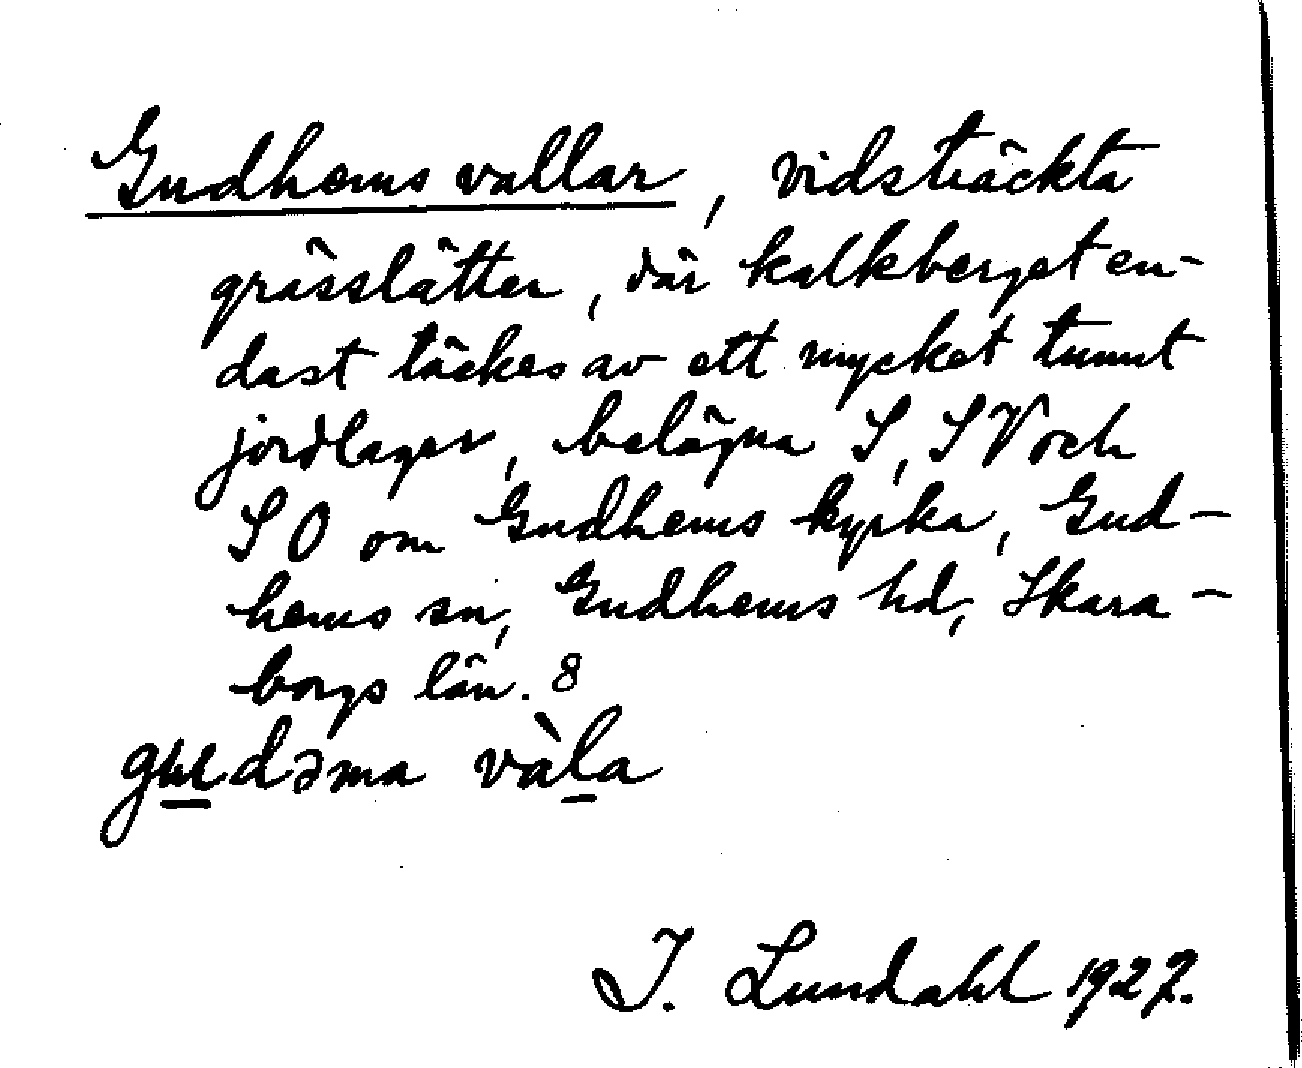 Gudhems vallar, vidsträckta
grässlätter, där kalkberget en-
dast täckes av ett mycket tunnt
jordlager, belägna S, SV och
SO om Gudhems kyrka, Gud-
hems sn, Gudhems hd, Skara-
borgs län. 8
gudəma vàla
I. Lundahl 1927.